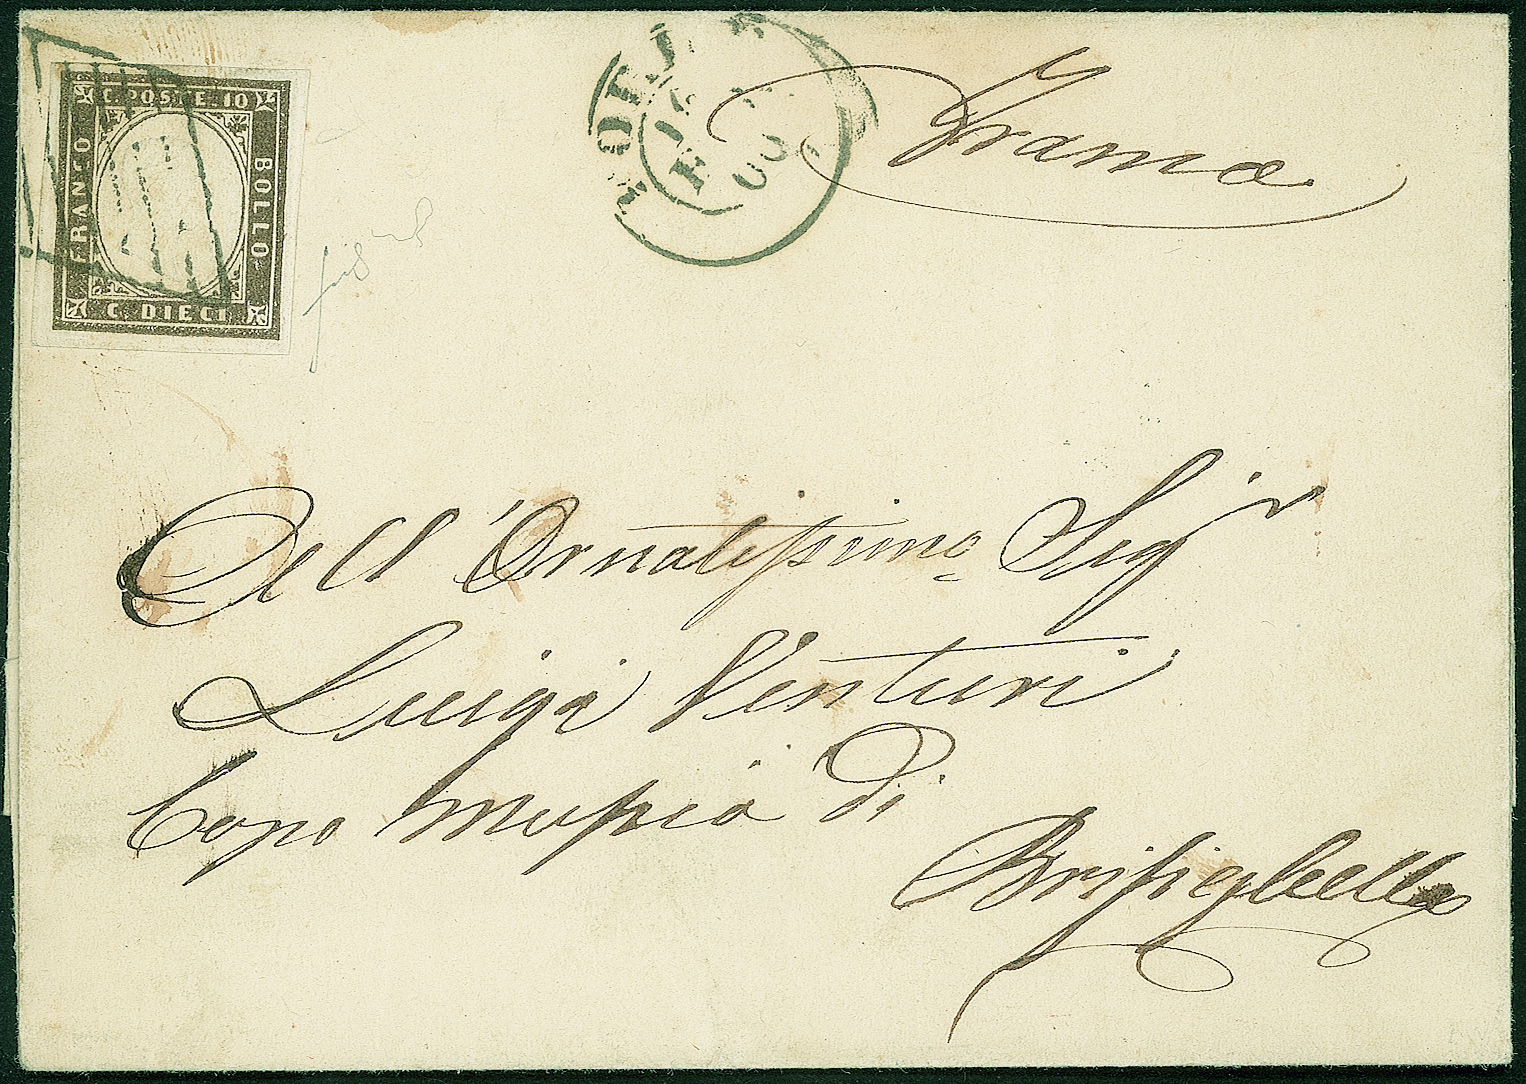 C. POSTE 10
FRANCO
BOLLO
C. DIECI
FORLI
60
Franca
Dell'Ornatissimo Sigr
Luigi Venturi
Capo musica di
Brisighella